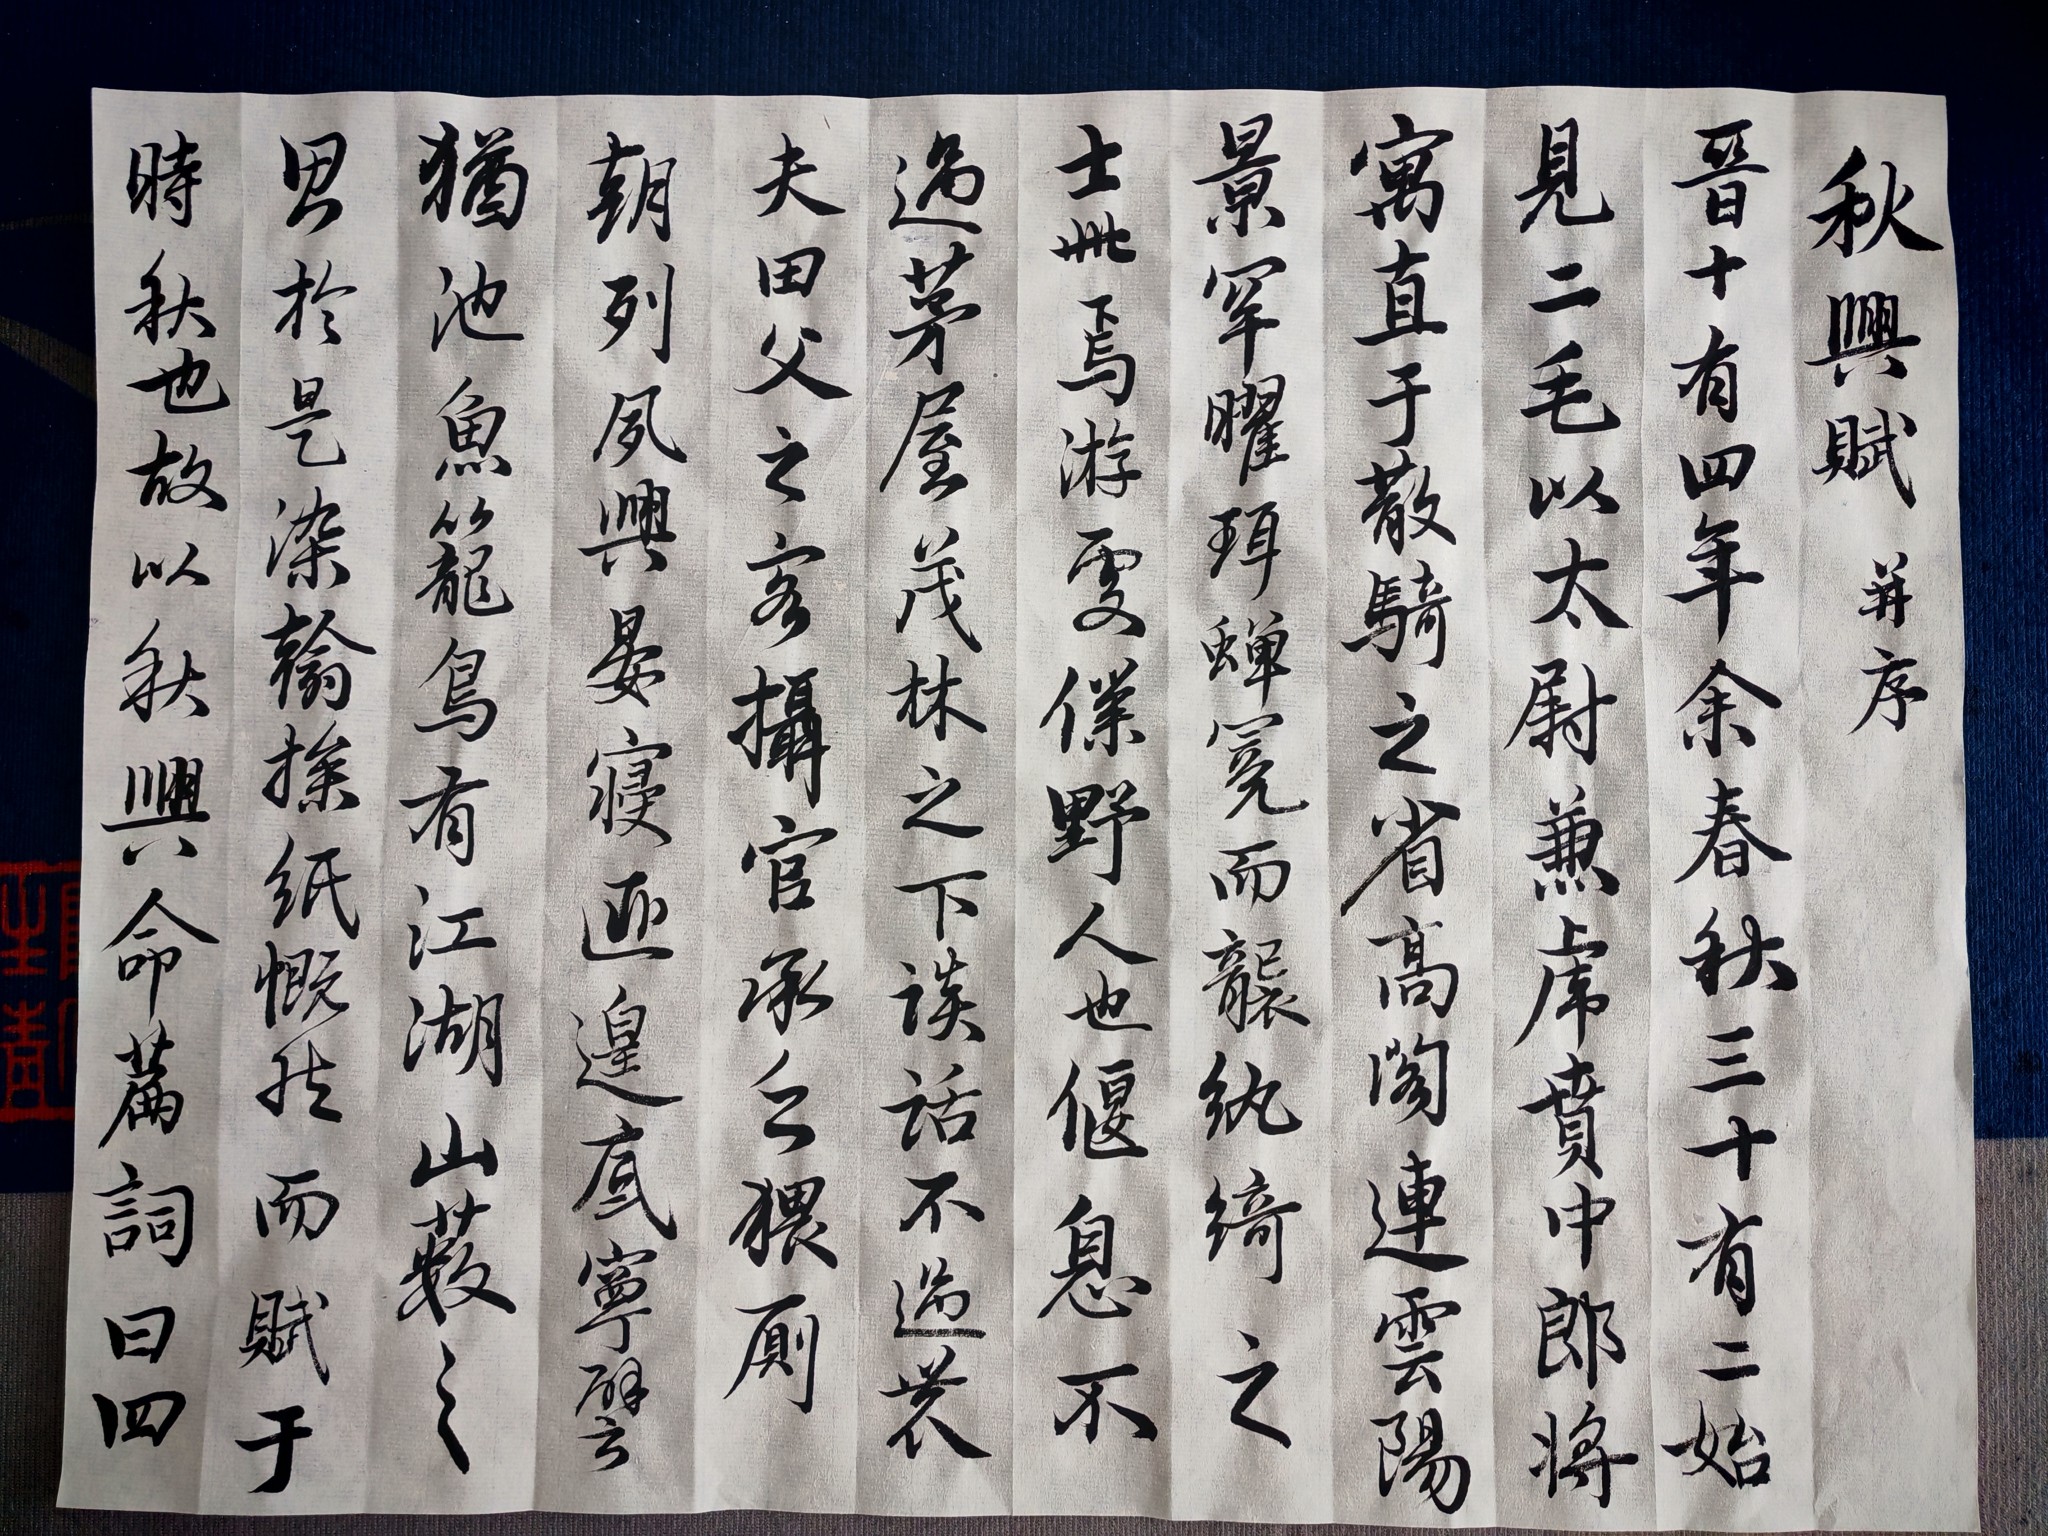 秋興賦 并序
晉十有四年余春秋三十有二始
見二毛以太尉兼虎賁中郎將
寓直于散騎之省高閣連雲陽
景罕曜珥蟬冕而襲紈綺之
士此焉游處僕野人也偃息不
過茅屋茂林之下談話不過農
夫田父之客攝官承乏猥厠
朝列夙興晏寢匪遑底寧譬
猶池魚籠鳥有江湖山藪之
思於是染翰操紙慨然而賦于
時秋也故以秋興命篇詞曰四